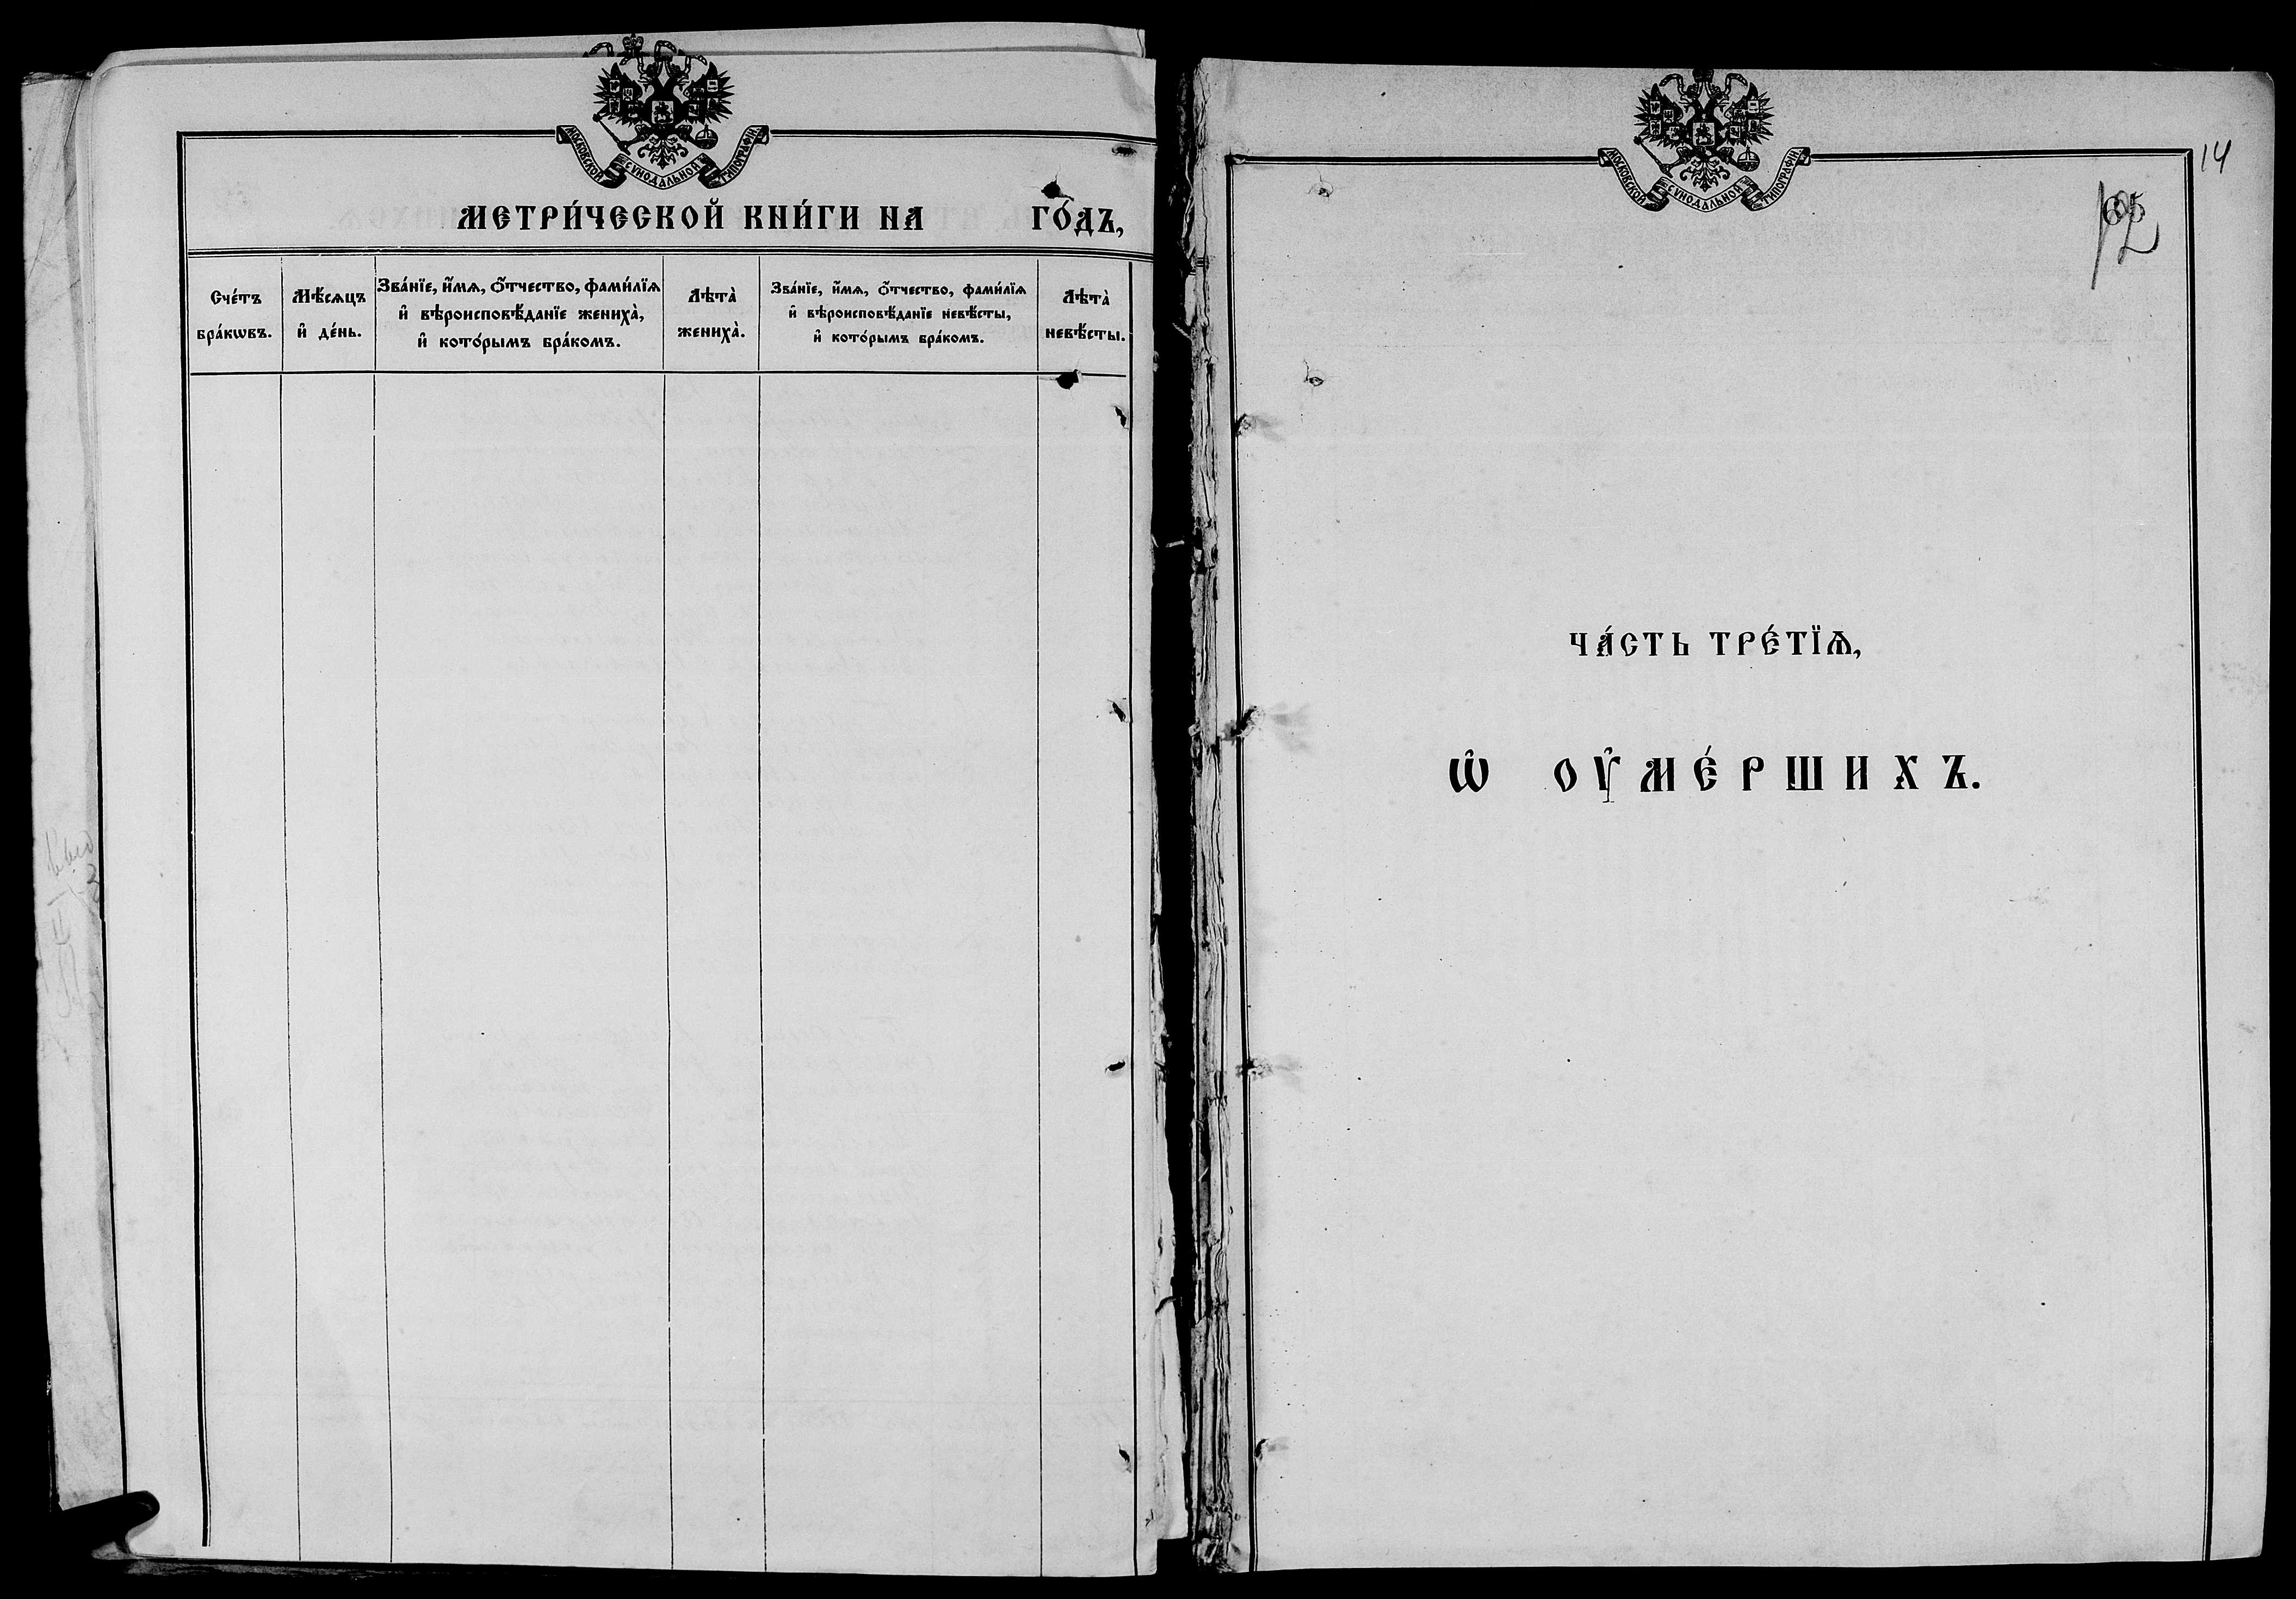 МОСКОВСКОЙ СѴНОДАЛЬНОЙ ТИПОГРАФІИ
МЕТРИ́ЧЕСКОЙ КНИ́ГИ НА ГО́ДЪ,
Сче́тъ бра́кѡвъ.
Мѣ́сѧцъ и҆ де́нь.
Зва́нїе, и҆́мѧ, ѻ҆́тчество, фами́лїѧ
и҆ вѣроисповѣ́данїе жениха̀,
и҆ кото́рымъ бра́комъ.
Лѣта̀ жениха̀.
Зва́нїе, и҆́мѧ, ѻ҆́тчество, фами́лїѧ
и҆ вѣроисповѣ́данїе невѣ́сты,
и҆ кото́рымъ бра́комъ.
Лѣта̀ невѣ́сты.
МОСКОВСКОЙ СѴНОДАЛЬНОЙ ТИПОГРАФІИ
14
ЧА́СТЬ ТРЕ́ТЇѦ,
Ѡ҆ ОУ҆МЕ́РШИХЪ.